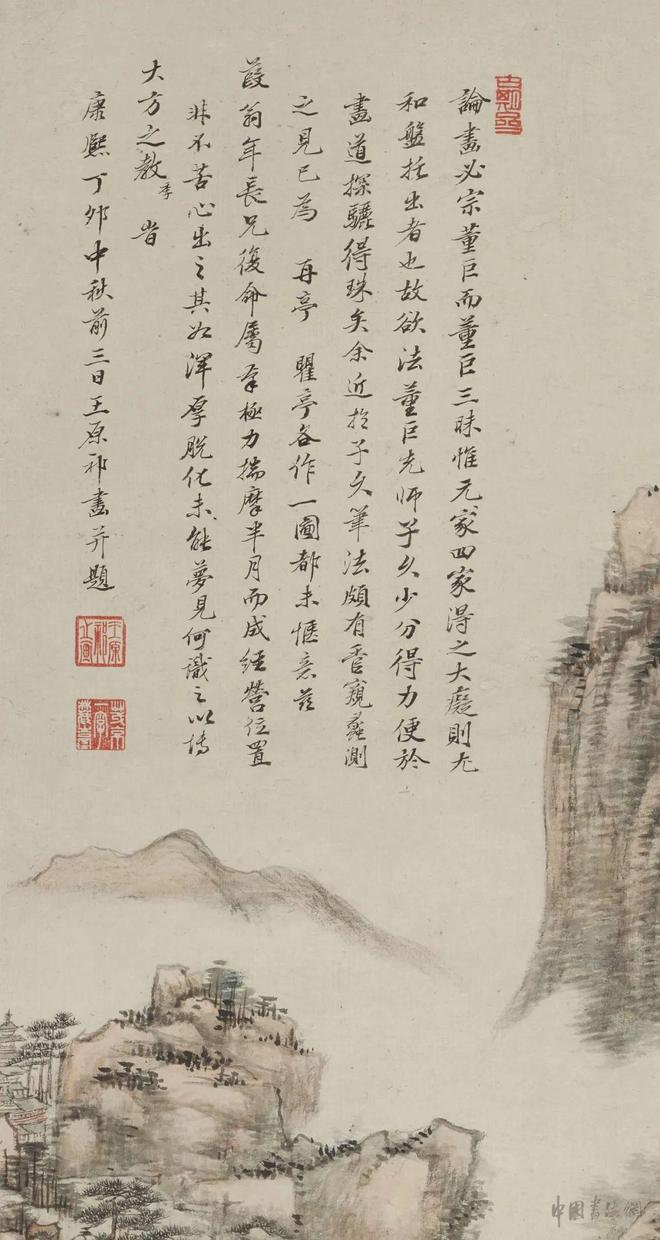 論畫必宗董巨而董巨三昧惟元家四家得之大癡則尤
和盤托出者也故欲法董巨先師子久少分得力便於
畫道探驪得珠矣余近於子久筆法頗有管窺蠡測
之見已為 再亭 瞿亭各作一圖都未愜意茲
葭翁年長兄復命屬極力揣摩半月而成經營位置
非不苦心出之其如渾厚脫化未能夢見何識之以博
大方之教
康熙丁卯中秋前三日王原祁畫并題
中國書法網